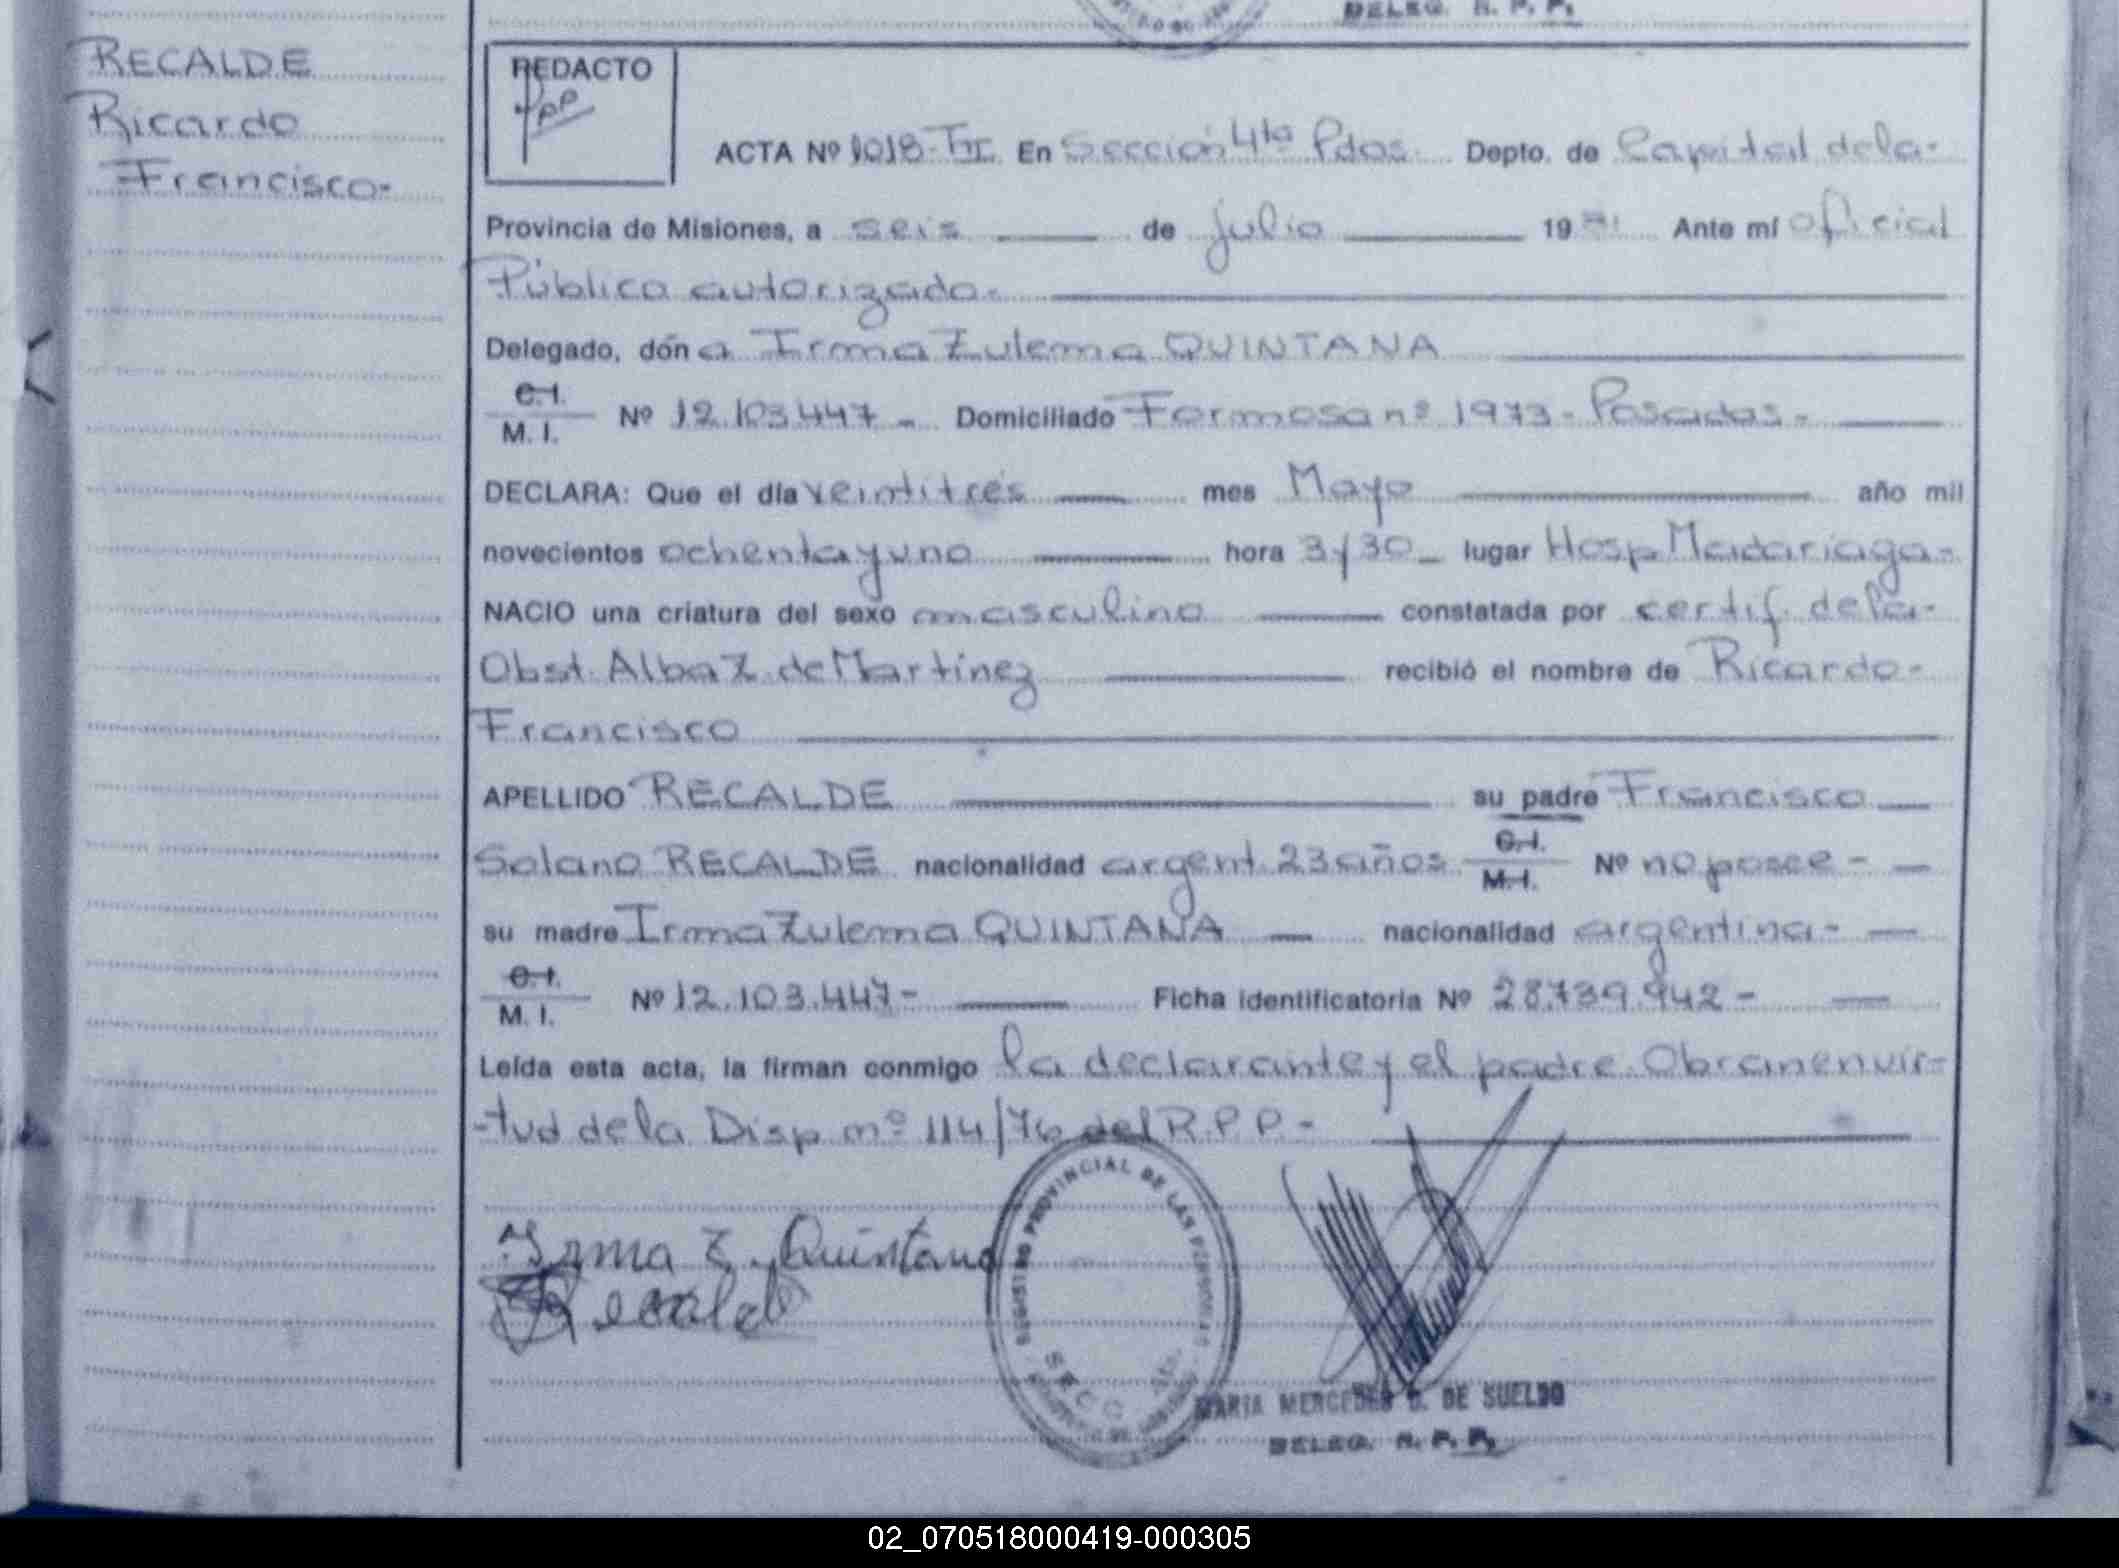 DELEG. R. P. P.
RECALDE
Ricardo
Francisco-
REDACTO
PP
ACTA Nº 1018-TII En Sección 4ta Pdas. Depto. de Capital dela-
Provincia de Misiones, a seis de julio 1981 Ante mí oficial
Público autorizado-
Delegado, dóna Irma Zulema QUINTANA
C. I.
M. I. Nº 12.103.447- Domiciliado Formosa nº 1973- Posadas-
DECLARA: Que el día veintitrés mes Mayo año mil
novecientos ochenta y uno hora 3y30- lugar Hosp Madariaga-
NACIO una criatura del sexo masculino constatada por certif. dela-
Obst. Alba Z. de Martínez recibió el nombre de Ricardo-
Francisco
APELLIDO RECALDE su padre Francisco
Solano RECALDE nacionalidad argent. 23 años C. I.
M. I. Nº no posee-
su madre Irma Zulema QUINTANA nacionalidad argentina-
C. I.
M. I. Nº 12.103.447- Ficha identificatoria Nº 28.739.942-
Leída esta acta, la firman conmigo la declarante y el padre. Obran en vir-
-tud de la Disp nº 114/76 del R.P.P.-
REGISTRO PROVINCIAL DE LAS PERSONAS
SECC
Irma Z. Quintana
Recalde
MARIA MERCEDES D. DE SUELDO
DELEG. R. P. P.
02_070518000419-000305